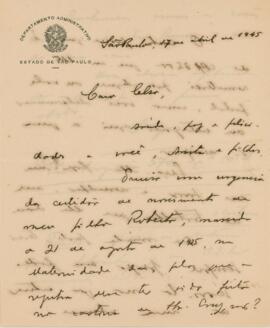 DEPARTAMENTO ADMINISTRATIVO
ESTADO DE SÃO PAULO
São Paulo, 17 de abril de 1945
Caro Celso,
saúde, paz e felici-
dades a você, Anita e filhos.
Preciso com urgencia
da certidão de nascimento de
meu filho Roberto, nascido
a 21 de agosto de 1925, na
Maternidade
registro deve ter sido feito
no cartorio de